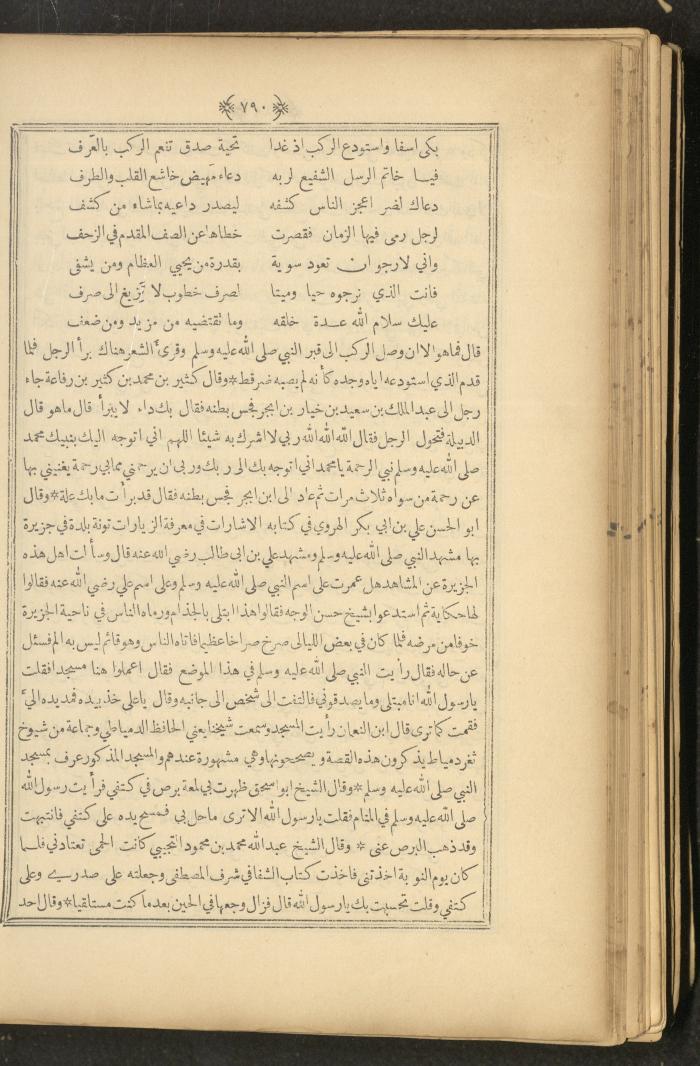 ٧٩٠
بكى اسفا واستودع الركب اذ غدا تحية صدق تنعم الركب بالعَرف
فيا خاتم الرسل الشفيع لربه دعاء مَهيض خاشع القلب والطرف
دعاك لضر اعجز الناس كشفه ليصدر داعيه بماشاء من كشف
لرجل رمى فيها الزمان فقصرت خطاها عن الصف المقدم في الزحف
واني لارجو ان تعود سوية بقدرة من يحيي العظام ومن يشفى
فانت الذي نرجوه حيا وميتا لصرف خطوب لا تَريغ الى صرف
عليك سلام الله عدة خلقه وما تقتضيه من مزيد ومن ضعف
قال فما هو الا ان وصل الركب الى قبر النبي صلى الله عليه وسلم وقرىء الشعر هناك برأ الرجل فلما
قدم الذي استودعه اياه وجده كأنه لم يصبه ضر قط * وقال كثير بن محمد بن كثير بن رفاعة جاء
رجل الى عبد الملك بن سعيد بن خيار بن ابجر فجس بطنه فقال بك داء لا يبرأ قال ما هو قال
الدبيلة فتحول الرجل فقال الله الله الله ربي لا اشرك به شيئا اللهم اني اتوجه اليك بنبيك محمد
صلى الله عليه وسلم نبي الرحمة يا محمد اني اتوجه بك الى ربك وربي ان يرحمني مما بي رحمة يغنيني بها
عن رحمة من سواه ثلاث مرات ثم عاد الى ابن ابجر فجس بطنه فقال قد برأت ما بك علة * وقال
ابو الحسن علي بن ابي بكر الهروي في كتابه الاشارات في معرفة الزيارات تونة بلدة في جزيرة
بها مشهد النبي صلى الله عليه وسلم ومشهد علي بن ابى طالب رضي الله عنه قال وسألت اهل هذه
الجزيرة عن المشاهد هل عمرت على اسم النبي صلى الله عليه وسلم وعلى اسم علي رضي الله عنه فقالوا
لها حكاية ثم استدعوا بشيخ حسن الوجه فقالوا هذا ابتلى بالجذام ورماه الناس في ناحية الجزيرة
خوفا من مرضه فلما كان في بعض الليالى صرخ صراخا عظيما فاتاه الناس وهو قائم ليس به الم فسئل
عن حاله فقال رأيت النبي صلى الله عليه وسلم في هذا الموضع فقال اعملوا هنا مسجدا فقلت
يا رسول الله انا مبتلى وما يصدقوني فالتفت الى شخص الى جانبه وقال يا على خذ بيده فمد يده الي
فقمت كما ترى قال ابن النعمان رأيت المسجد وسمعت شيخنا يعني الحافظ الدمياطي وجماعة من شيوخ
ثغر دمياط يذكرون هذه القصة ويصححونها وهي مشهورة عندهم والمسجد المذكور عرف بمسجد
النبي صلى الله عليه وسلم * وقال الشيخ ابو اسحق ظهرت بي لمعة برص في كتفي فرأيت رسول الله
صلى الله عليه وسلم في المنام فقلت يا رسول الله الا ترى ما حل بي فمسح يده على كتفي فانتبهت
وقد ذهب البرص عنى * وقال الشيخ عبد الله محمد بن محمود التجيبي كانت الحمى تعتادني فلما
كان يوم النوبة اخذتنى فاخذت كتاب الشفا في شرف المصطفى وجعلته على صدري وعلى
كتفي وقلت تحسبت بك يا رسول الله قال فزال وجعها في الحين بعد ما كنت مستلقيا * وقال احد